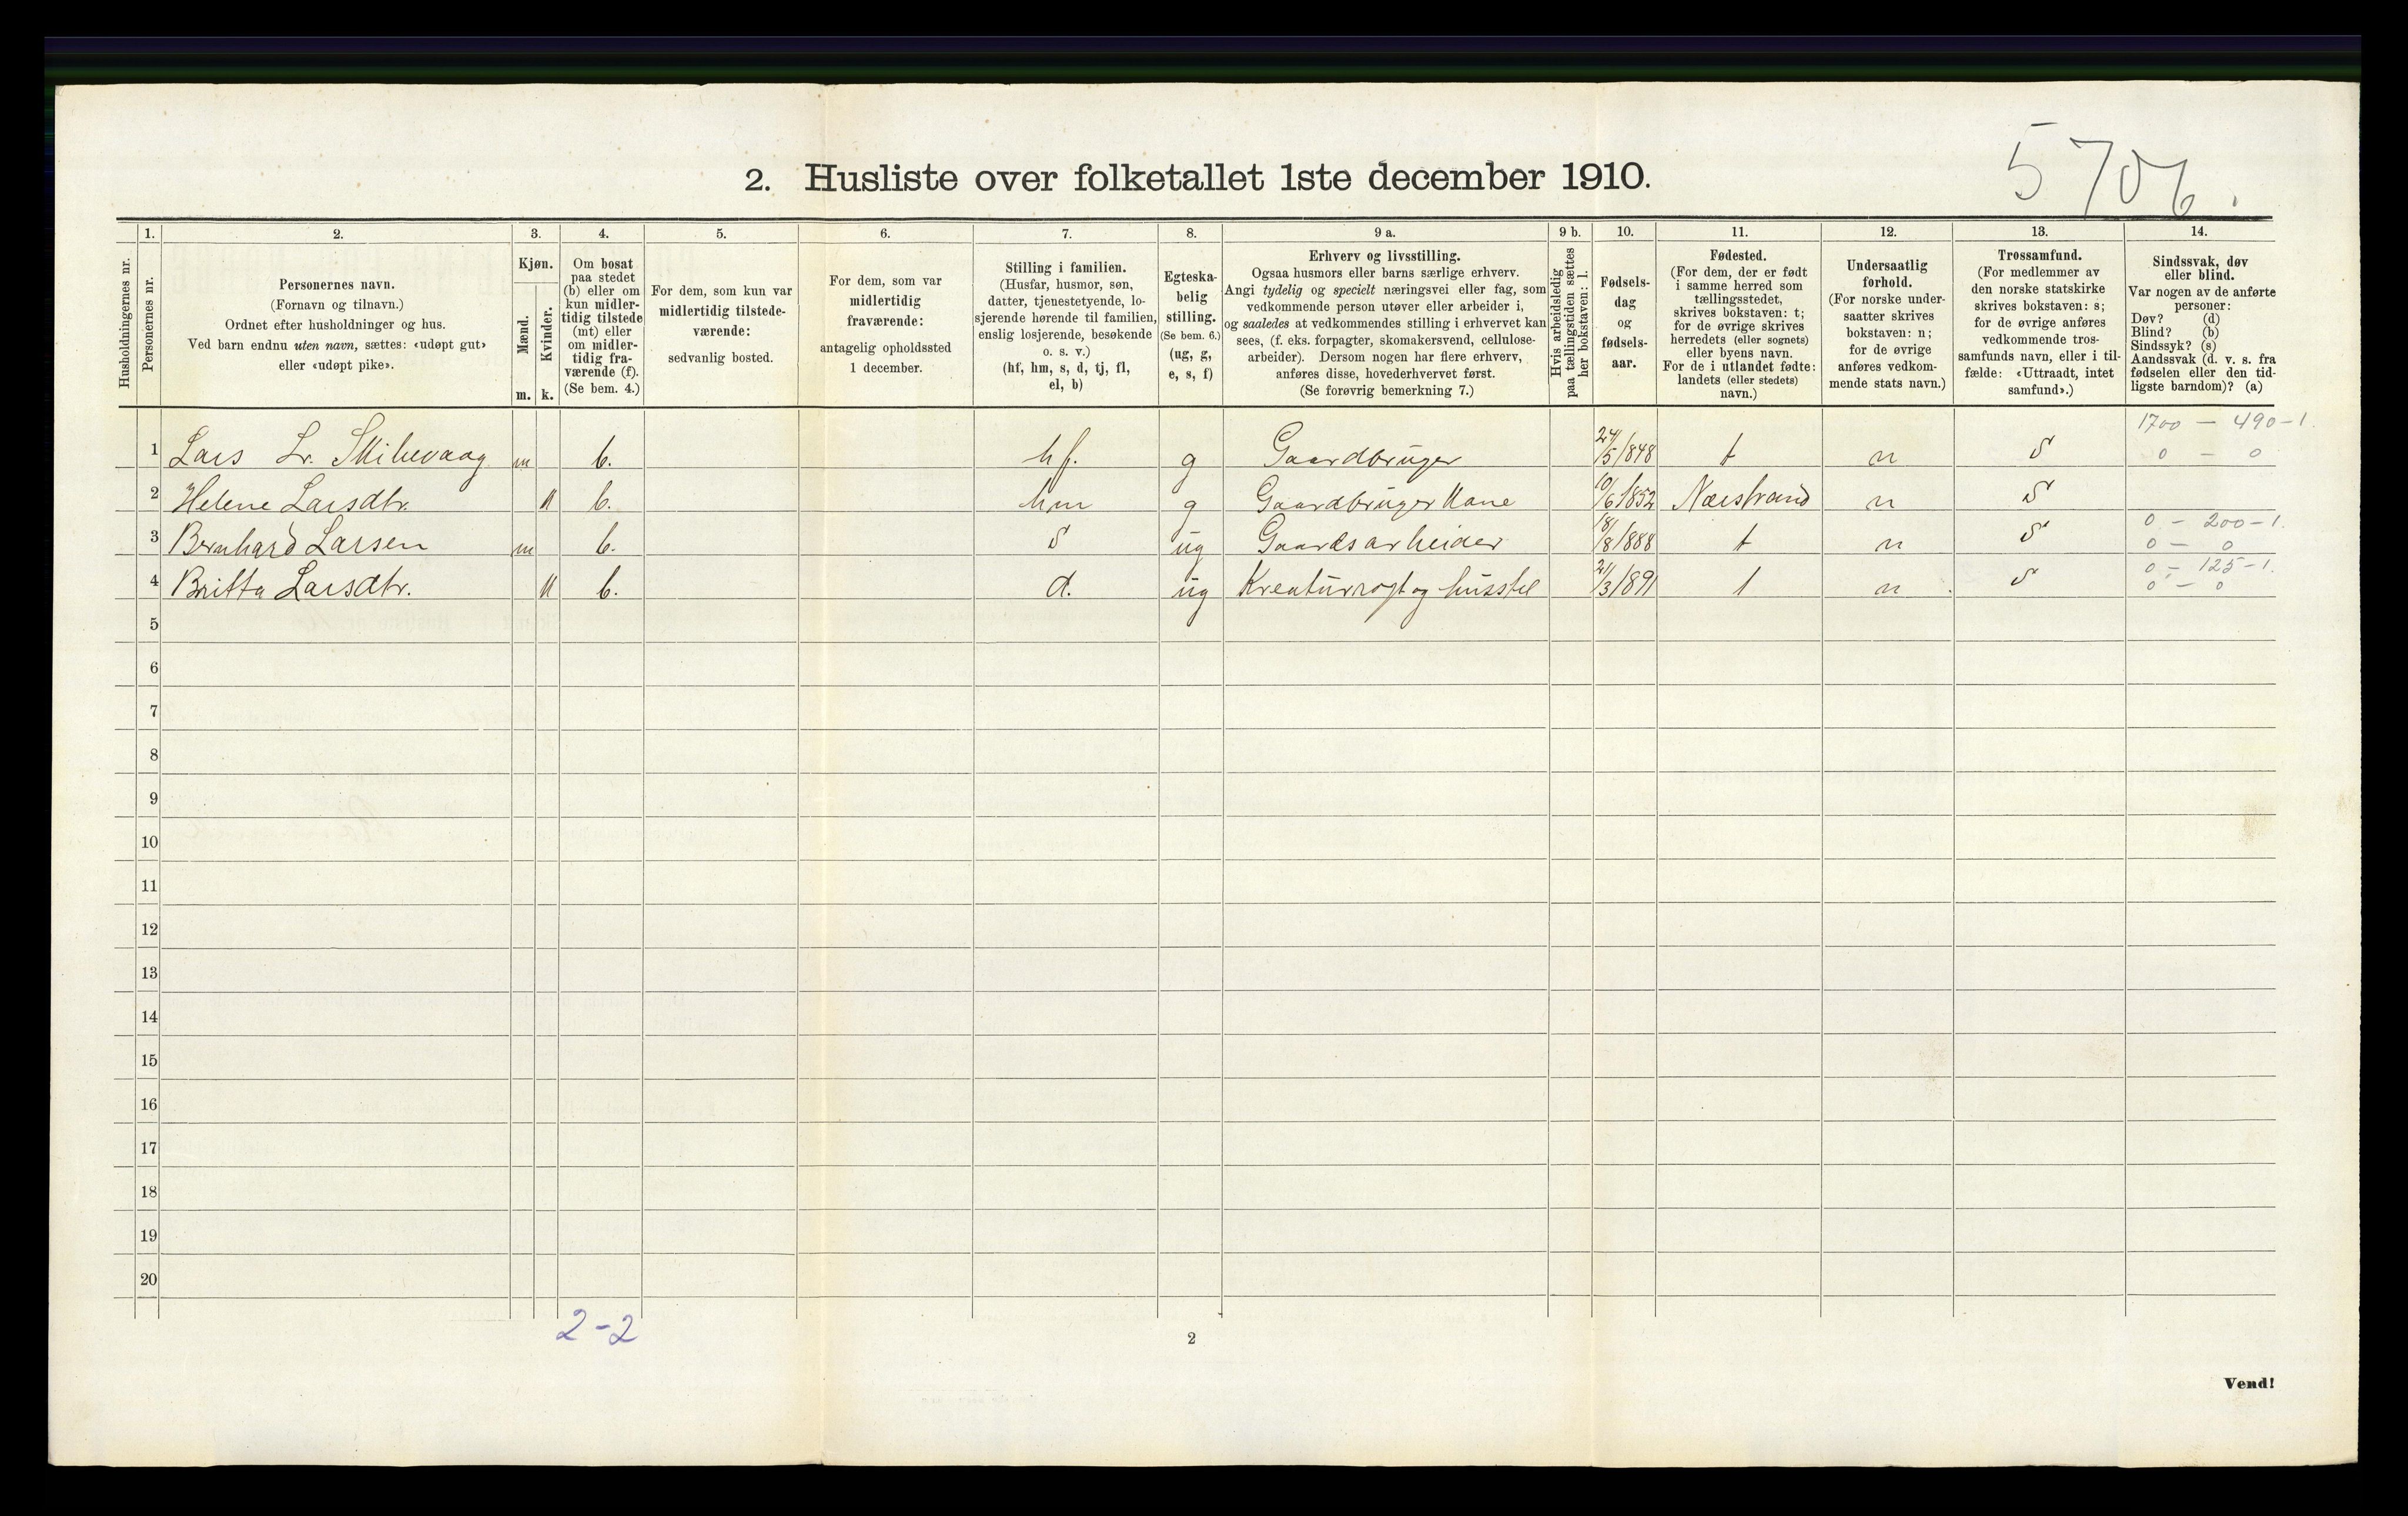 5706.
2. Husliste over folketallet 1ste december 1910.
1. 2. 3. 4. 5. 6. 7. 8. 9 a. 9 b. 10. 11. 12. 13. 14.
Husholdningernes nr.
Personernes nr.
Personernes navn.
(Fornavn og tilnavn.)
Ordnet efter husholdninger og hus.
Ved barn endnu uten navn, sættes: «udøpt gut»
eller «udøpt pike».
Kjøn.
Mænd.
Kvinder.
m. k.
Om bosat
paa stedet
(b) eller om
kun midler-
tidig tilstede
(mt) eller
om midler-
tidig fra-
værende (f).
(Se bem. 4.)
For dem, som kun var
midlertidig tilstede-
værende:
sedvanlig bosted.
For dem, som var
midlertidig
fraværende:
antagelig opholdssted
1 december.
Stilling i familien.
(Husfar, husmor, søn,
datter, tjenestetyende, lo-
sjerende hørende til familien,
enslig losjerende, besøkende
o. s. v.)
(hf, hm, s, d, tj, fl,
el, b)
Egteska-
belig
stilling.
(Se bem. 6.)
(ug, g,
e, s, f)
Erhverv og livsstilling.
Ogsaa husmors eller barns særlige erhverv.
Angi tydelig og specielt næringsvei eller fag, som
vedkommende person utøver eller arbeider i,
og saaledes at vedkommendes stilling i erhvervet kan
sees, (f. eks. forpagter, skomakersvend, cellulose-
arbeider). Dersom nogen har flere erhverv,
anføres disse, hovederhvervet først.
(Se forøvrig bemerkning 7.)
Hvis arbeidsledig
paa tællingstiden sættes
her bokstaven: l.
Fødsels-
dag
og
fødsels-
aar.
Fødested.
(For dem, der er født
i samme herred som
tællingsstedet,
skrives bokstaven: t;
for de øvrige skrives
herredets (eller sognets)
eller byens navn.
For de i utlandet fødte:
landets (eller stedets)
navn.)
Undersaatlig
forhold.
(For norske under-
saatter skrives
bokstaven: n;
for de øvrige
anføres vedkom-
mende stats navn.)
Trossamfund.
(For medlemmer av
den norske statskirke
skrives bokstaven: s;
for de øvrige anføres
vedkommende tros-
samfunds navn, eller i til-
fælde: «Uttraadt, intet
samfund».)
Sindssvak, døv
eller blind.
Var nogen av de anførte
personer:
Døv? (d)
Blind? (b)
Sindssyk? (s)
Aandssvak (d. v. s. fra
fødselen eller den tid-
ligste barndom)? (a)
1700 - 490-1.
1 Lars Lr. Skibevaag m b. hf. g Gaardbruger 24/5 1848 t n S 0 - 0
2 Helene Larsdtr. k b. hm g Gaardbruger Kone 10/6 1852 Nærstrand n S
0 - 200-1.
3 Bernhard Larsen m b. S ug Gaardsarbeider 18/8 1888 t n S 0 - 0
0 - 125-1.
4 Britta Larsdtr. k b. d. ug Kreaturrøgt og husstel 21/3 1891 t n S 0 - 0
5
6
7
8
9
10
11
12
13
14
15
16
17
18
19
20
2-2
2
Vend!